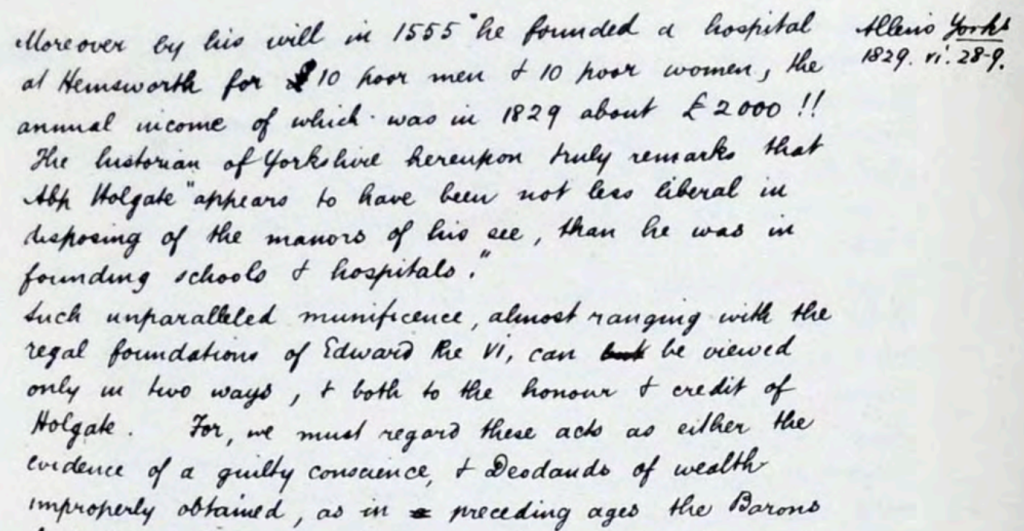 Moreover by his will in 1555 "he founded a hospital
at Hemsworth for 10 poor men & 10 poor women, the
annual income of which was in 1829 about £2000!!
The historian of Yorkshire hereupon truly remarks that
Abp Holgate "appears to have been not less liberal in
disposing of the manors of his see, than he was in
founding schools & hospitals."
Such unparalleled munificence, almost ranging with the
regal foundations of Edward the VI, can but be viewed
only in two ways, & both to the honour & credit of
Holgate. For, we must regard these acts as either the
evidence of a guilty conscience, & Deodands of wealth
improperly obtained, as in preceding ages the Barons
Allen's Yorks
1829. vi. 28-9.